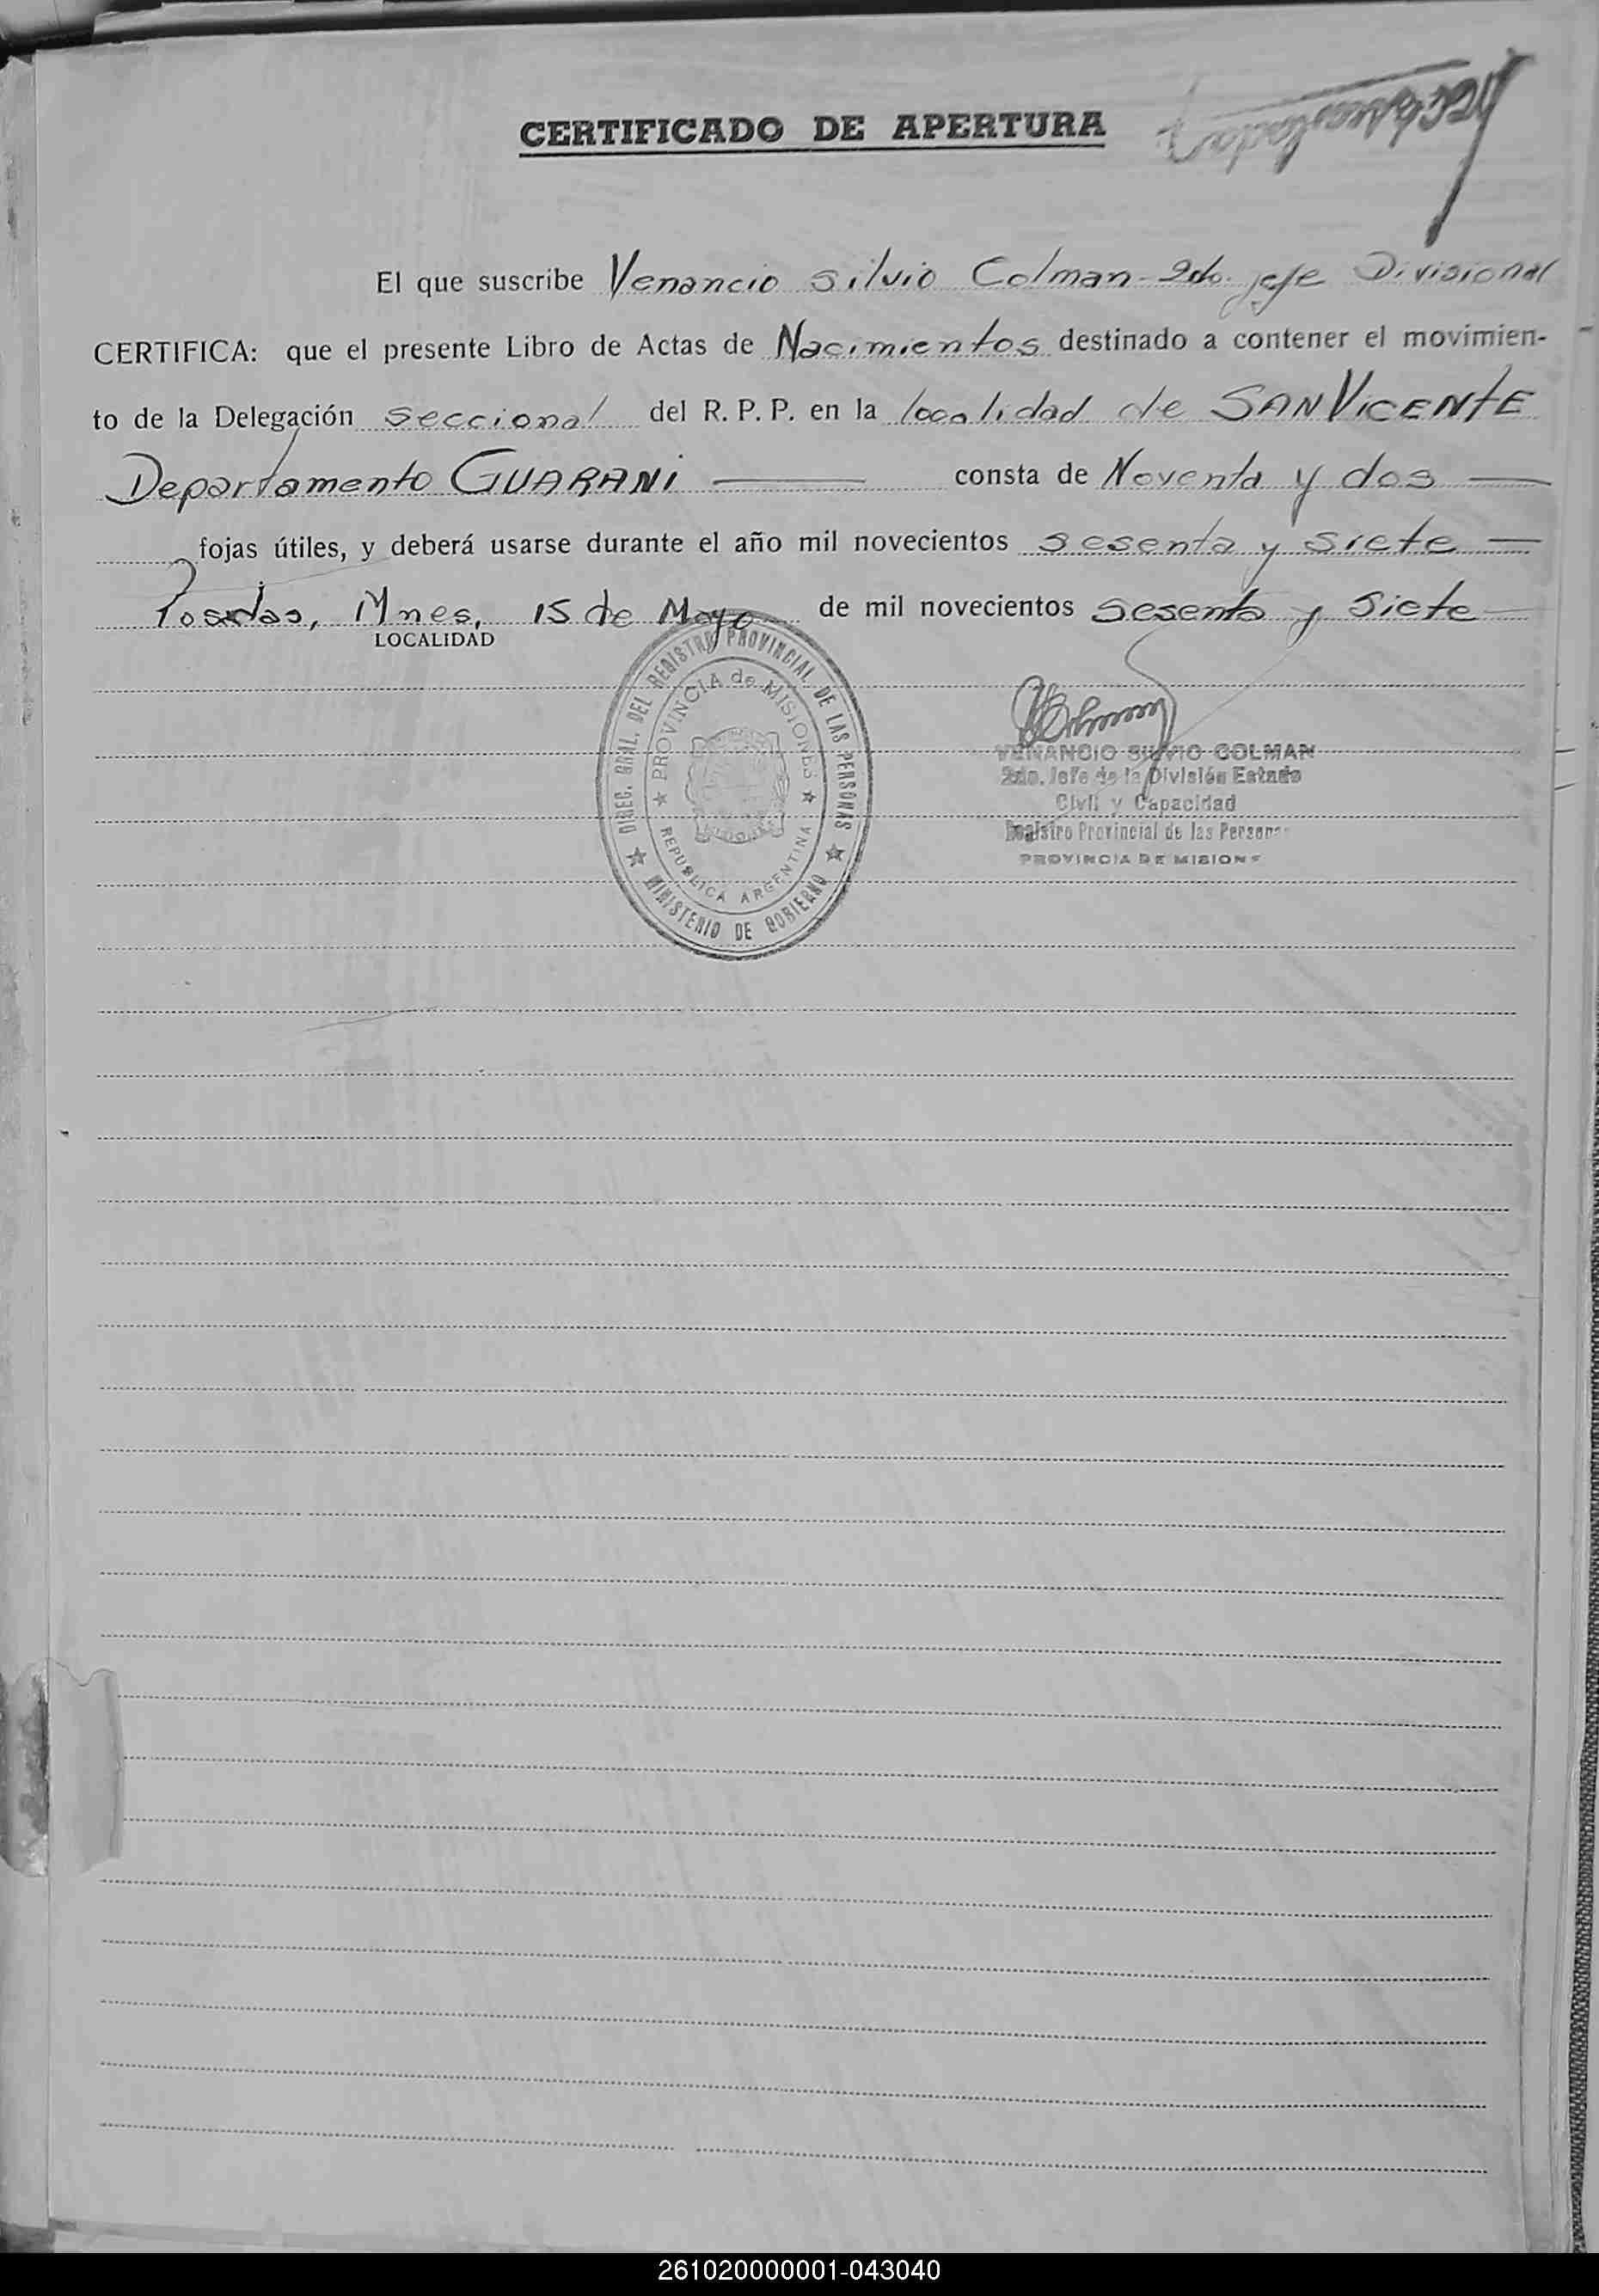 CERTIFICADO DE APERTURA
El que suscribe Venancio Silvio Colman - 2do. jefe Divisional
CERTIFICA: que el presente Libro de Actas de Nacimientos destinado a contener el movimien-
to de la Delegación Seccional del R. P. P. en la localidad de SAN VICENTE
Departamento GUARANI consta de Noventa y dos
fojas útiles, y deberá usarse durante el año mil novecientos sesenta y siete
Posadas, Mnes, 15 de Mayo de mil novecientos sesenta y siete
LOCALIDAD
DIREC. GRAL. DEL REGISTRO PROVINCIAL DE LAS PERSONAS
PROVINCIA de MISIONES
REPUBLICA ARGENTINA
MINISTERIO DE GOBIERNO
VENANCIO SILVIO COLMAN
2do. Jefe de la División Estado
Civil y Capacidad
Registro Provincial de las Personas
PROVINCIA DE MISIONES
261020000001-043040